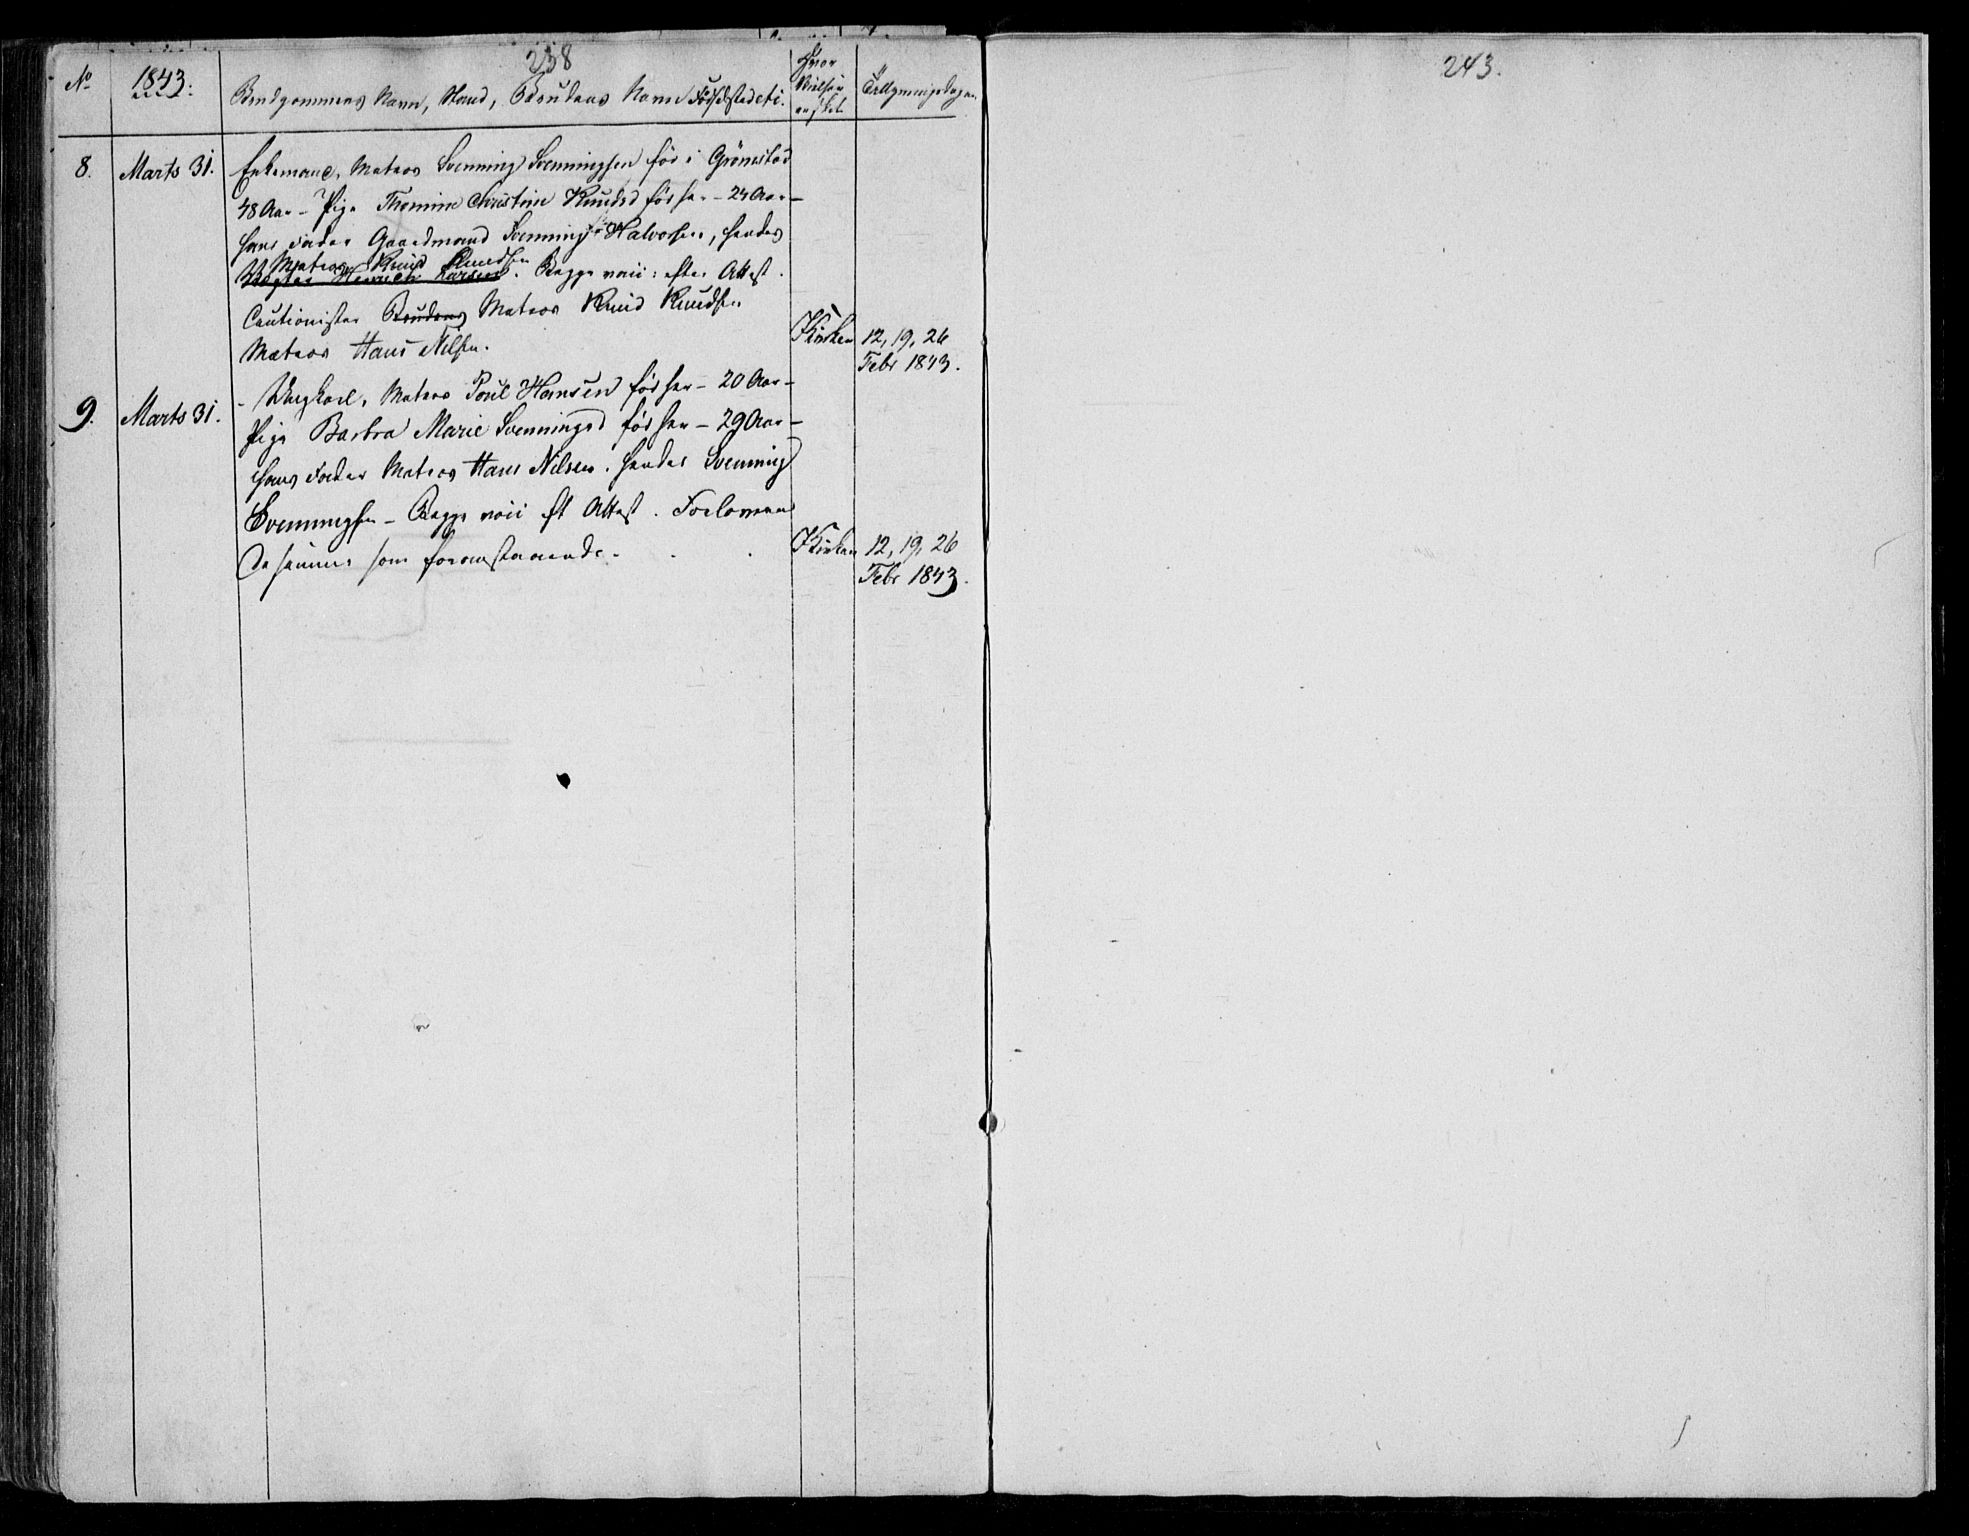 238
No
1843.
Brudgommens Navn, Stand, Brudens Navn Fødselsted etc.
Hvor
Vielsen
er skeet
Tillysningsdagen
8.
Marts 31.
Enkemand, Matros Svenning Svenningsen fød i Grømstad
48 Aar - Pige Thomine Christine Knudsd fød her - 24 Aar -
hans Fader Gaardmand Svenning Halvorsen, hendes
Matros Knud Knudsen
Henrich Larsen. Begge vacc: efter Attest.
Cautionister Brudens Matros Knud Knudsen
Matros Hans Nilsen.
Kirken
12, 19, 26
Febr 1843.
9.
Marts 31.
- Ungkarl, Matros Poul Hansen fød her - 20 Aar -
Pige Barbra Marie Svenningsd fød her - 29 Aar -
hans Fader Matros Hans Nilsen. hendes Svenning
Svenningsen - Begge vacc eft Attest. Forlovere
De samme som foranstaaende.
Kirken
12, 19, 26
Febr 1843.
243.